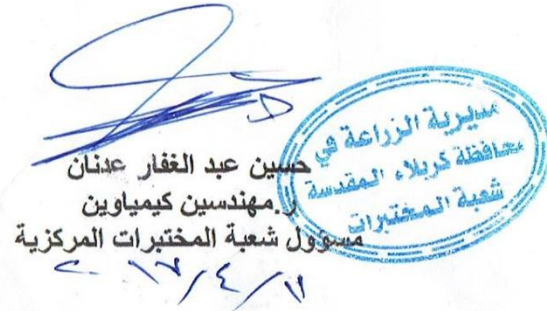 مديرية الزراعة في
محافظة كربلاء المقدسة
شعبة المختبرات
حسين عبد الغفار عدنان
ر.مهندسين كيمياوين
مسؤول شعبة المختبرات المركزية
٢٠١٧/٤/١١